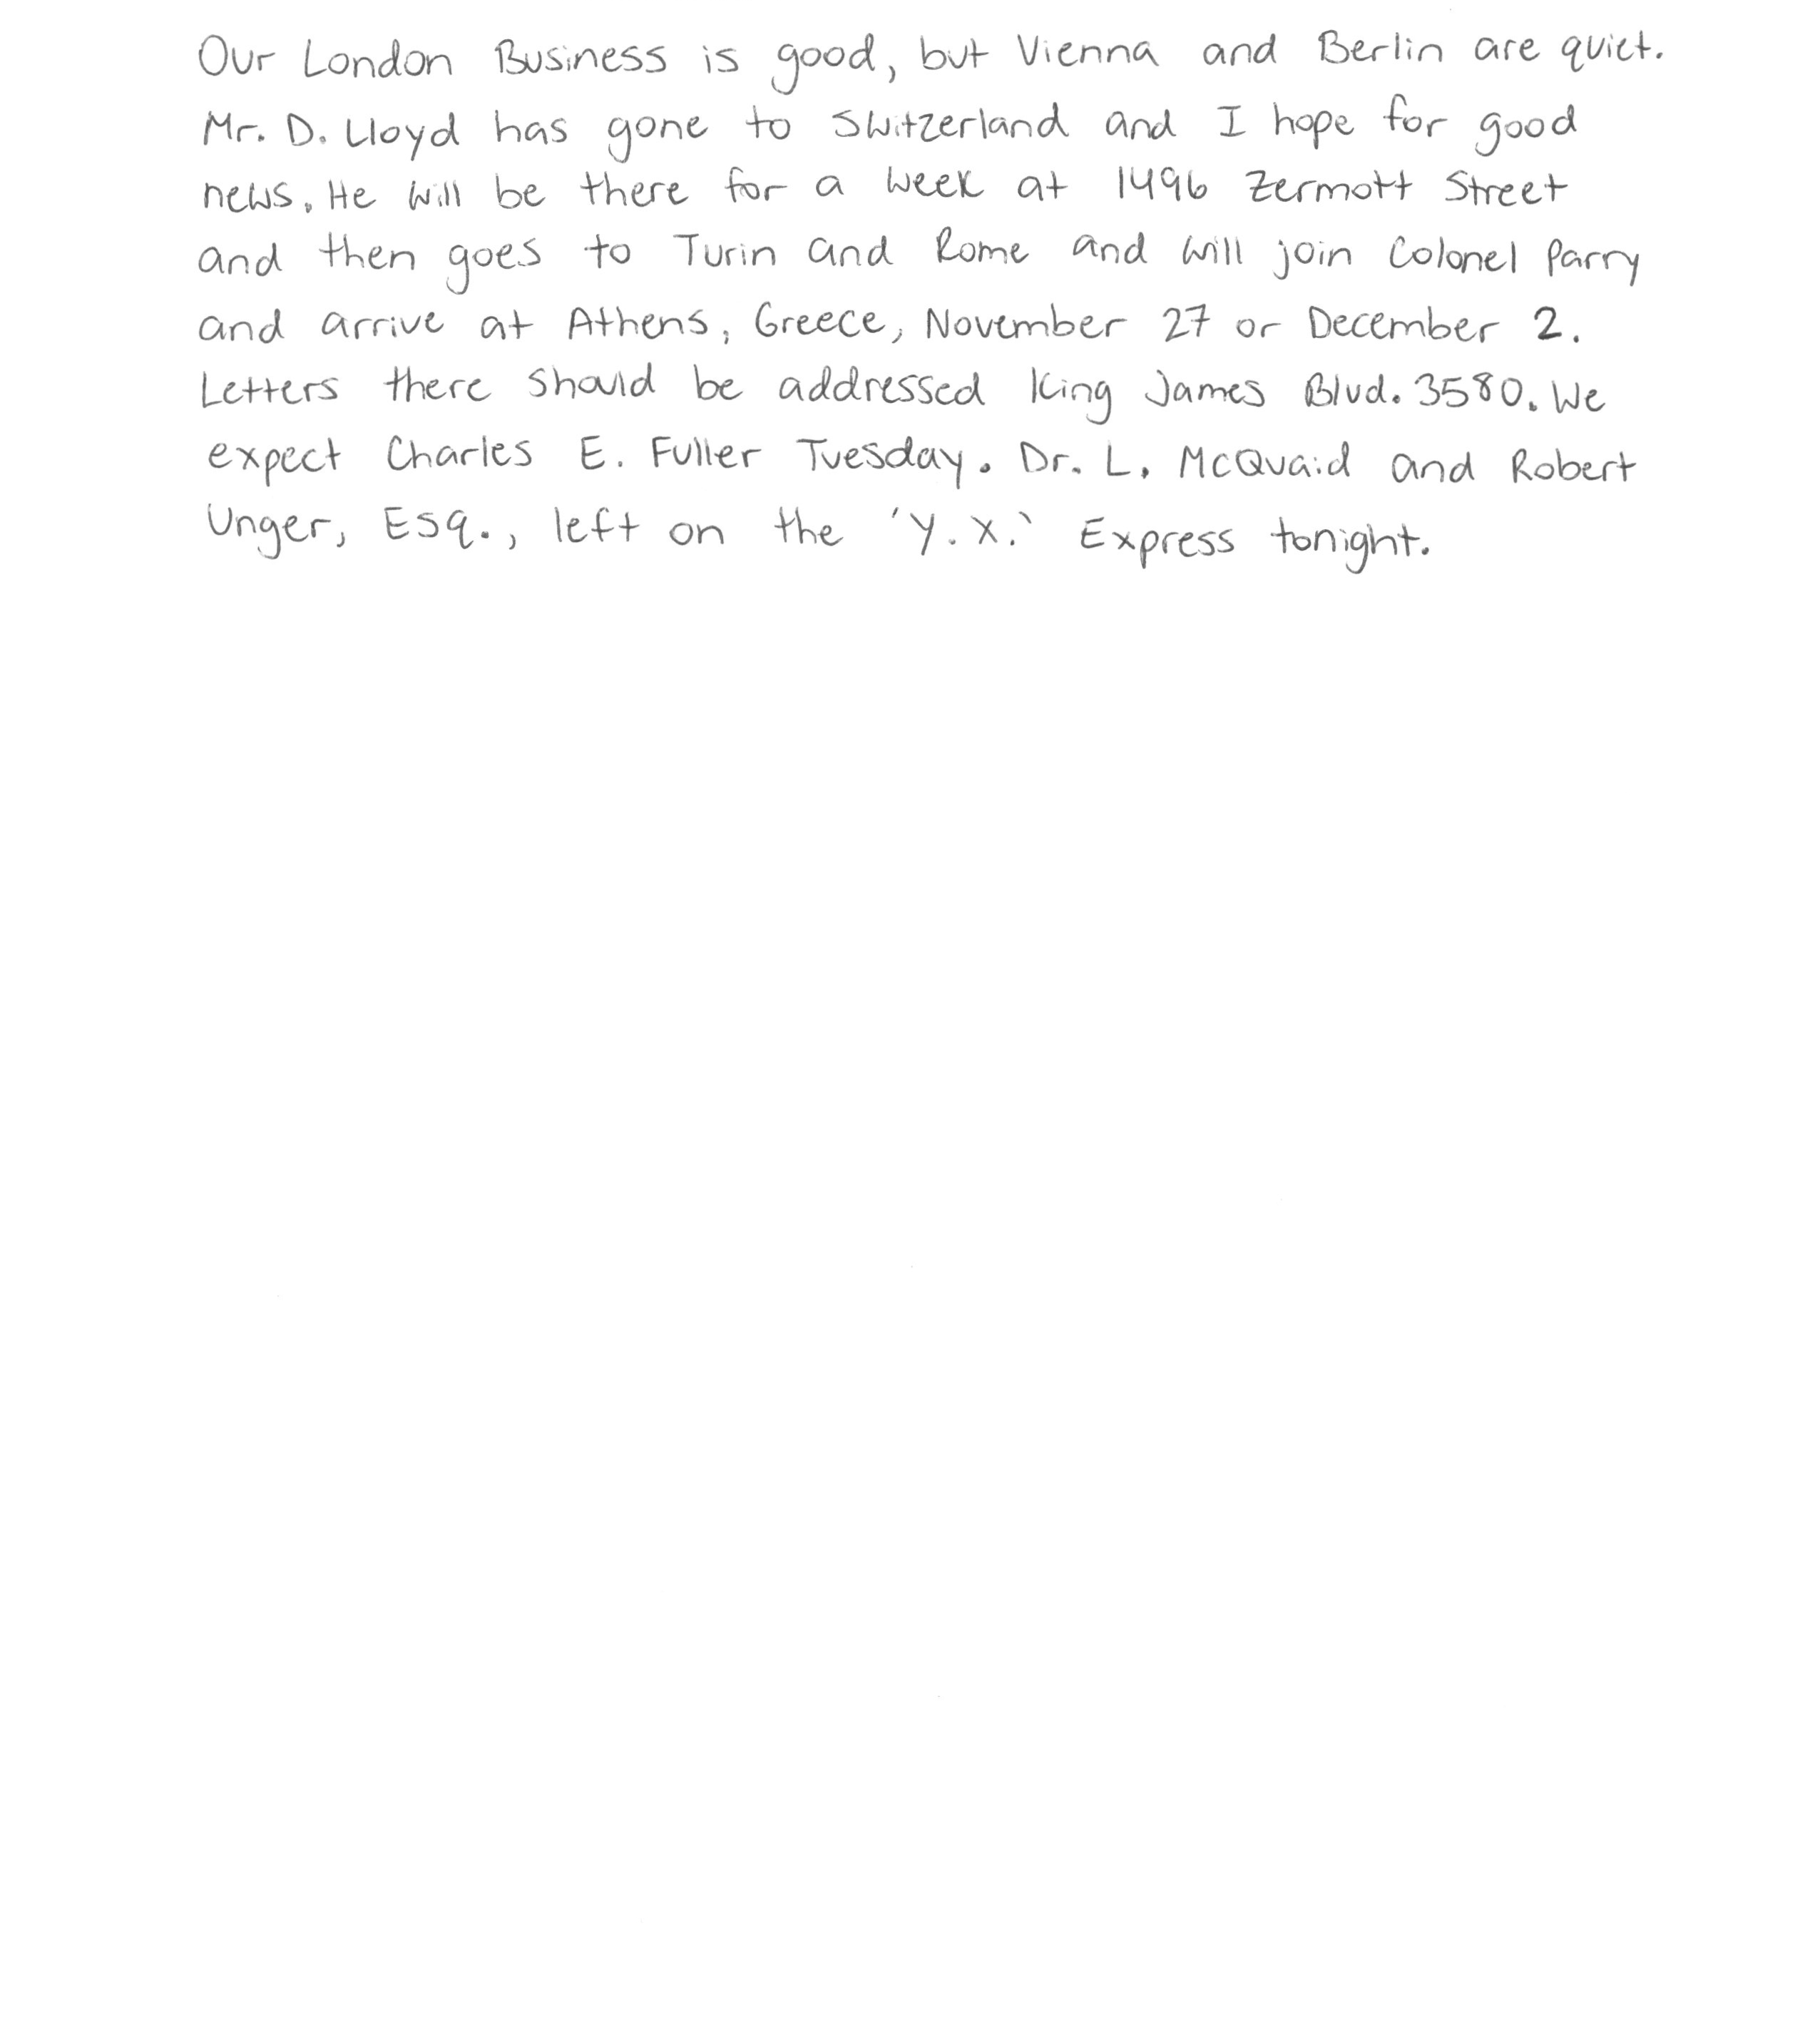 Our London Business is good, but Vienna and Berlin are quiet.
Mr. D. Lloyd has gone to Switzerland and I hope for good
news. He will be there for a week at 1496 Zermott Street
and then goes to Turin and Rome and will join Colonel Parry
and arrive at Athens, Greece, November 27 or December 2.
Letters there should be addressed King James Blvd. 3580. We
expect Charles E. Fuller Tuesday. Dr. L. McQuaid and Robert
Unger, Esq., left on the 'Y.X.' Express tonight.